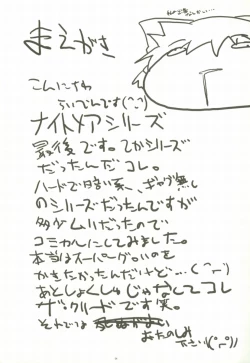 まえがき
こんにちわ
らいでんです(^^)
ナイトメアシリーズ
最後です。てかシリーズ
だったんだコレ。
ハードで暗い系、ギャグ無し
のシリーズだったんですが
多分ムリだったので
コミカルにしてみました。
本当はスーパーグロいのを
かきたかったんだけど…
あとしょくしゅじゃなくてコレ
ザ・クリードです笑。
それでは
おたのしみ
下さい